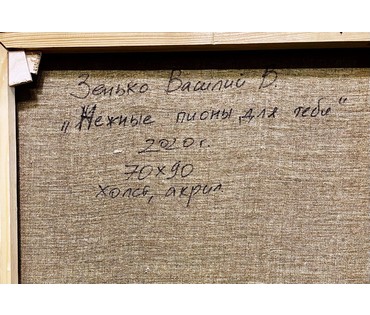 Зенько Василий В.
„Нежные пионы для тебя"
2020г.
70х90
холст, акрил